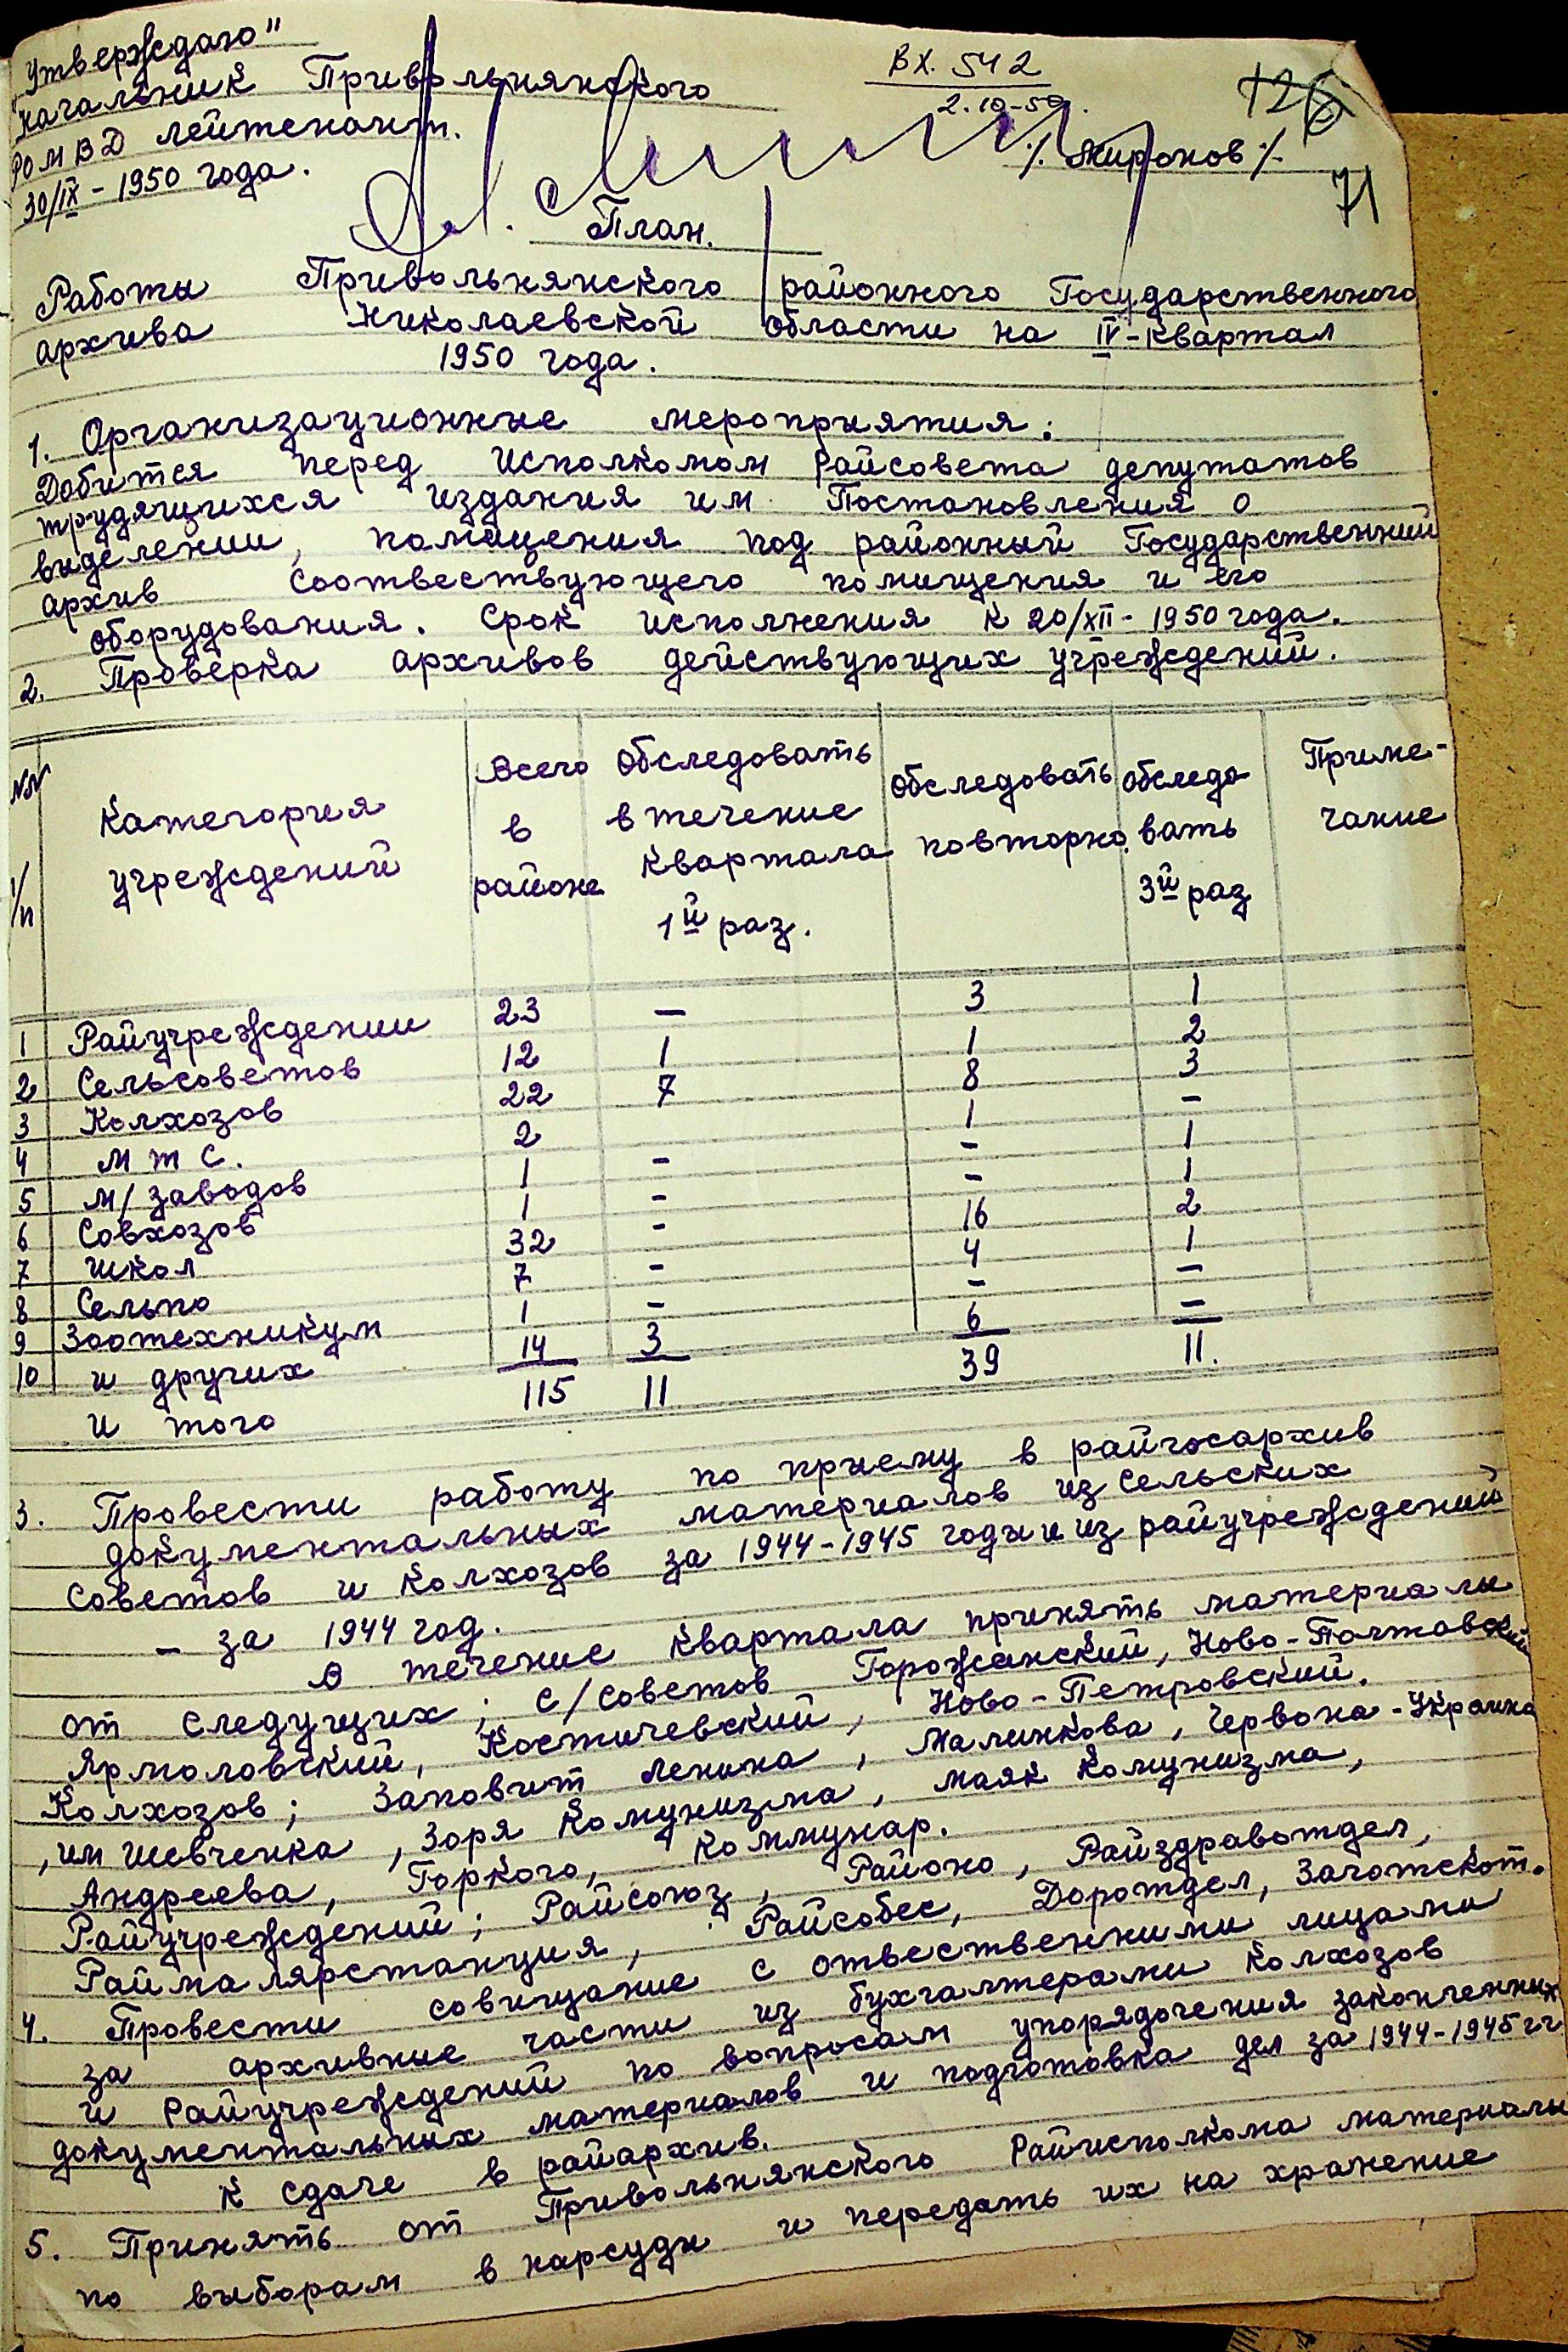 "Утверждаю"
Начальник Привольнянского
РОМВД лейтенант.
30/IX - 1950 года.
/. Миронов /.
ВХ. 542
2.10-50.
126
71
План.
Работы Привольнянского районного Государственного
архива Николаевской области на IV-квартал
1950 года.
1. Организационные мероприятия:
Добится перед Исполкомом Райсовета депутатов
трудящихся издания им Постановления о
выделении, помищения под районный Государственний
архив соотвествующего помищения и его
оборудования. Срок исполнения к 20/XII - 1950 года.
2. Проверка архивов действующих учреждений.
NN п/п | Категория учреждений | Всего в районе | Обследовать в течение квартала 1й раз. | Обследовать повторно. | Обследовать 3й раз | Примечание
1 Райучреждении 23 — 3 1
2 Сельсоветов 12 1 1 2
3 Колхозов 22 7 8 3
4 М Т С. 2 1 -
5 М/заводов 1 - - 1
6 Совхозов 1 - - 1
7 Школ 32 - 16 2
8 Сельпо 7 - 4 1
9 Зоотехникум 1 - - —
10 и других 14 3 6 —
И того 115 11 39 11.
3. Провести работу по приему в райгосархив
документальных материалов из сельских
советов и колхозов за 1944-1945 годы и из райучреждений
- за 1944 год.
В течение квартала принять материалы
от следущих; с/советов Горожанский, Ново-Полтавский
Ярмоловский, Костичевский, Ново-Петровский.
Колхозов; Заповит Ленина, Малинкова, Червона-Украина
, им Шевченка, Зоря Комунизма, маяк Комунизма,
Андреева, Горкого, Коммунар.
Райучреждений; Райсоюз, Районо, Райздравотдел,
Раймалярстанция, Райсобес, Дорождел, Заготскот.
4. Провести совищание с отвественними лицами
за архивние части из бухгалтерами колхозов
и Райучреждений по вопросам упорядочения законченных
документальных материалов и подготовка дел за 1944-1945 г.г
к сдаче в райархив.
5. Принять от Привольнянского Райисполкома материалы
по выборам в нарсуды и передать их на хранение